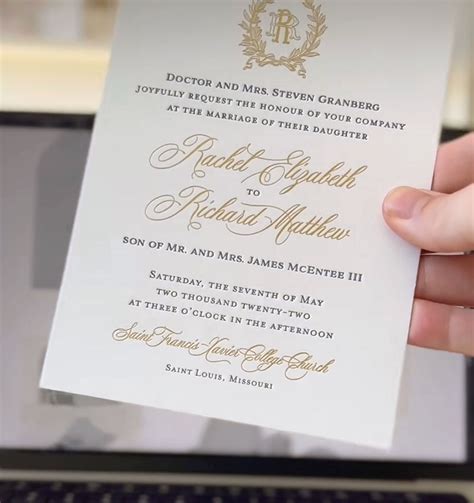 RR
DOCTOR AND MRS. STEVEN GRANBERG
JOYFULLY REQUEST THE HONOUR OF YOUR COMPANY
AT THE MARRIAGE OF THEIR DAUGHTER
Rachel Elizabeth
TO
Richard Matthew
SON OF MR. AND MRS. JAMES MCENTEE III
SATURDAY, THE SEVENTH OF MAY
TWO THOUSAND TWENTY-TWO
AT THREE O'CLOCK IN THE AFTERNOON
Saint Francis Xavier College Church
SAINT LOUIS, MISSOURI